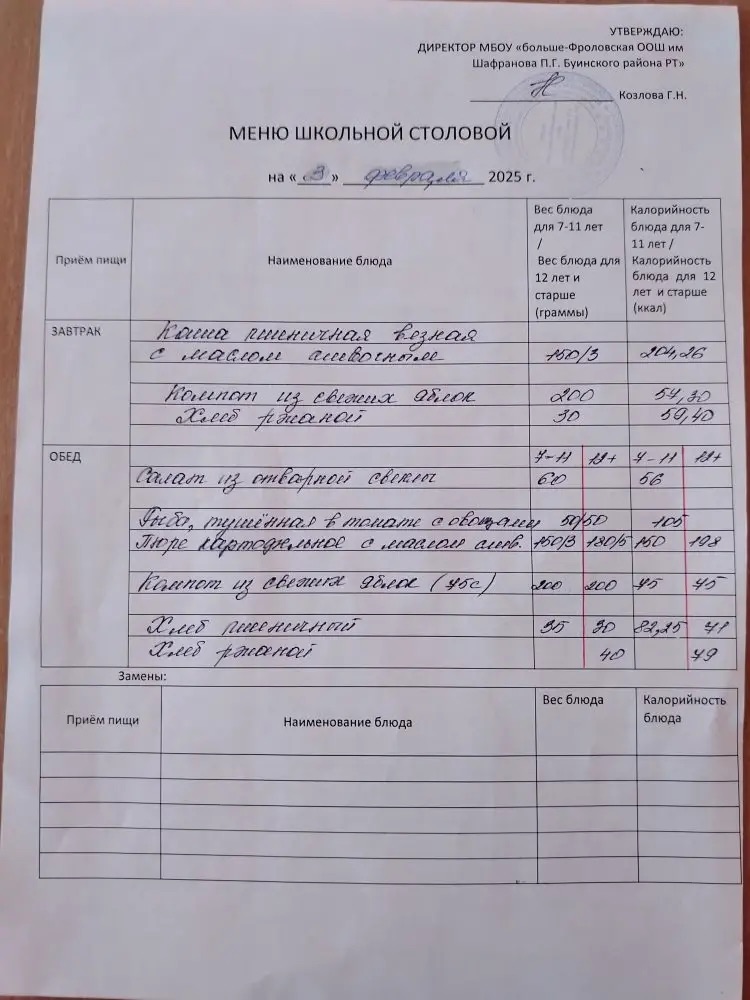 УТВЕРЖДАЮ:
ДИРЕКТОР МБОУ «больше-Фроловская ООШ им
Шафранова П.Г. Буинского района РТ»
Козлова Г.Н.
МЕНЮ ШКОЛЬНОЙ СТОЛОВОЙ
на «3» февраля 2025 г.
Приём пищи
Наименование блюда
Вес блюда
для 7-11 лет
/
Вес блюда для
12 лет и
старше
(граммы)
Калорийность
блюда для 7-
11 лет /
Калорийность
блюда для 12
лет и старше
(ккал)
ЗАВТРАК
Каша пшеничная вязкая
с маслом сливочным 150/3 204,26
Компот из свежих яблок 200 57,30
Хлеб ржаной 30 59,40
ОБЕД 7-11 12+ 7-11 12+
Салат из отварной свеклы 60 56
Рыба, тушённая в томате с овощами 50/50 105
Пюре картофельное с маслом слив. 150/3 180/5 150 198
Компот из свежих яблок (75с) 200 200 75 75
Хлеб пшеничный 35 30 82,25 71
Хлеб ржаной 40 79
Замены:
Приём пищи
Наименование блюда
Вес блюда
Калорийность
блюда